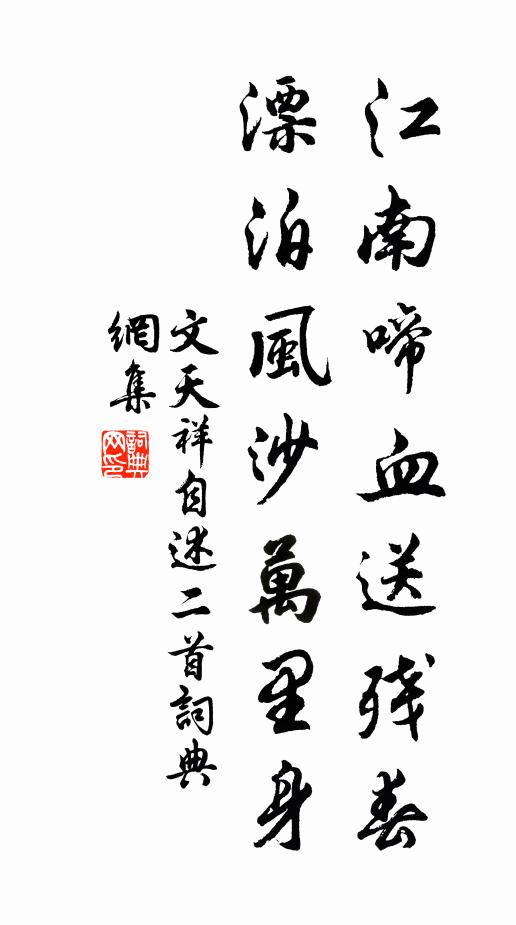 江南啼血送残春
漂泊風沙萬里身
文天祥自述二首詞典
網集
詞典
网印